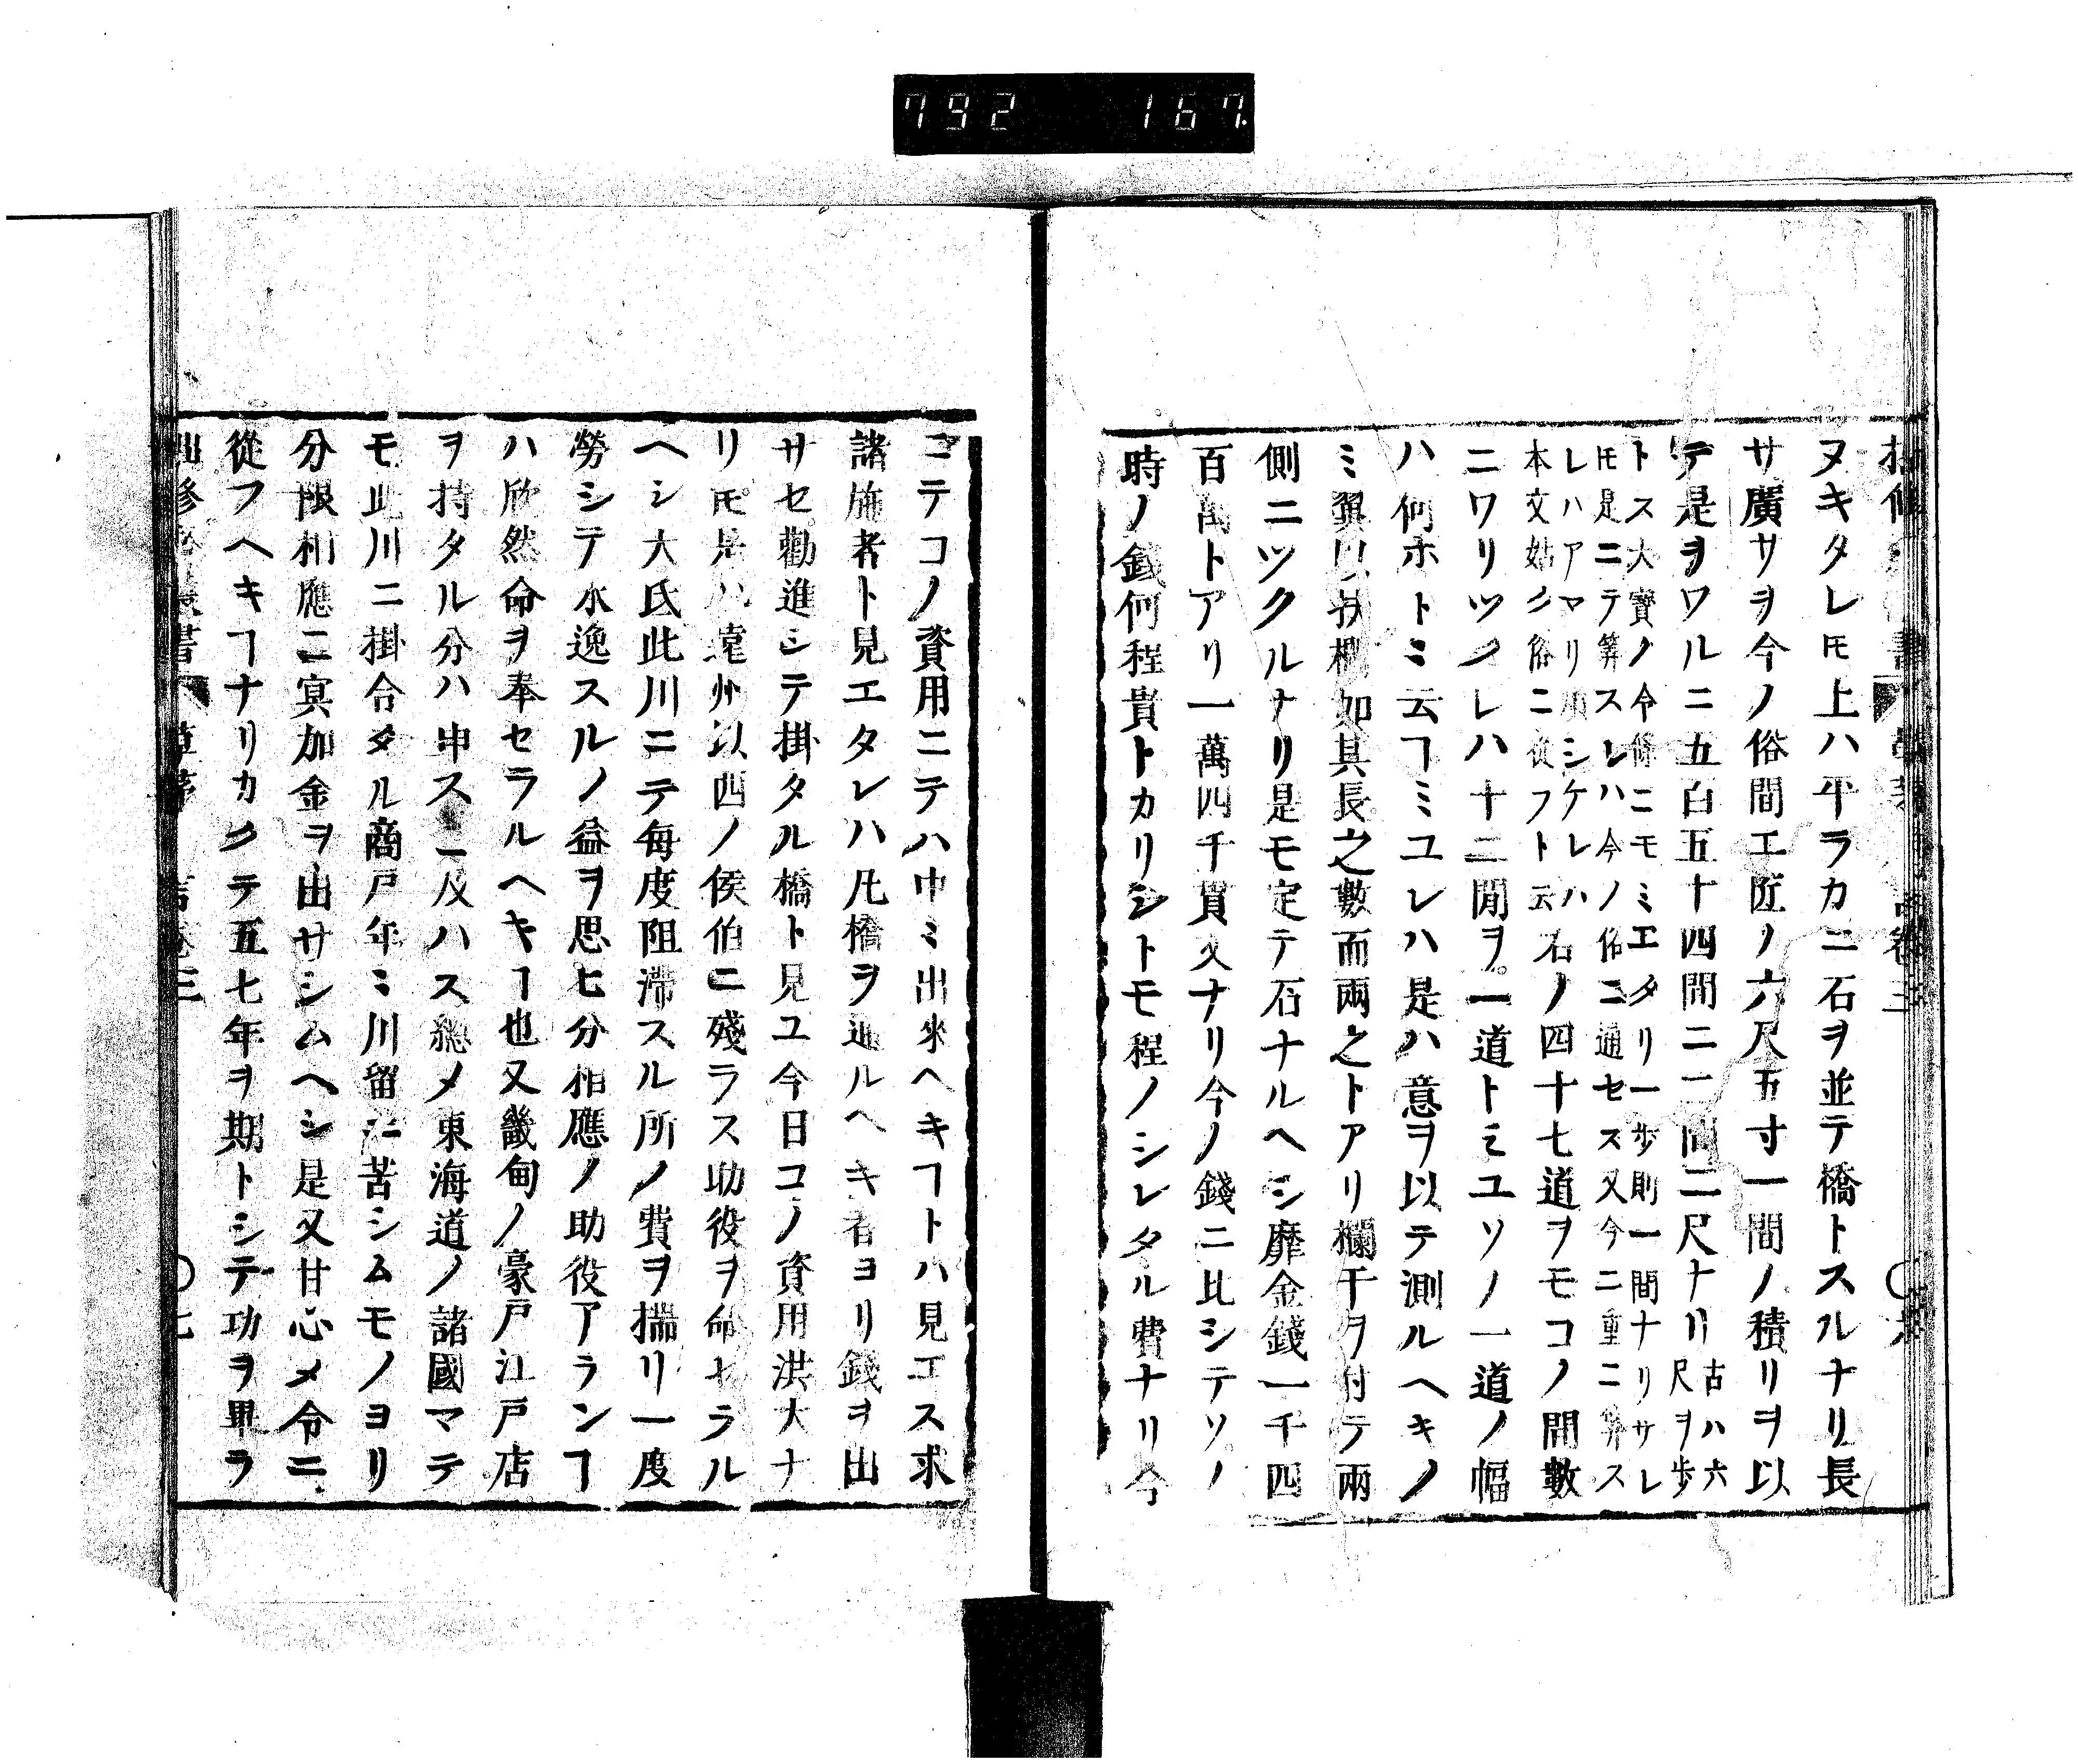 792 167
ヌキタレ𪜈上ハ平ラカニ石ヲ並テ橋トスルナリ長
サ廣サヲ今ノ俗間工匠ノ六尺五寸一間ノ積リヲ以
テ是ヲワルニ五百五十四間二一間二尺ナリ古ハ六
尺ヲ歩
トス大寳ノ令條ニモミエタリ一歩則一間ナリサレ
𪜈是ニテ筭スレハ今ノ俗ニ通セス又今ニ重ニ筭ス
レハアマリ煩シケレハ
本文姑ク俗ニ從フト云
石ノ四十七道ヲモコノ間數
ニワリツクレハ十二間ヲ一道トミユソノ一道ノ幅
ハ何ホトミ云ヿミユレハ是ハ意ヲ以テ測ルヘキノ
ミ翼以扶欄如其長之數而兩之トアリ欄干ヲ付テ兩
側ニツクルナリ是モ定テ石ナルヘシ靡金錢一千四
百萬トアリ一萬四千貫文ナリ今ノ錢ニ比シテソノ
時ノ錢何程貴トカリシトモ程ノシレタル費ナリ今
ニテコノ資用ニテハ中ミ出來ヘキヿトハ見エス求
諸施者ト見エタレハ凡橋ヲ通ルヘキ者ヨリ錢ヲ出
サセ勸進シテ掛タル橋ト見ユ今日コノ資用洪大ナ
リ𪜈是ハ遠州以西ノ侯伯ニ殘ラス助役ヲ命セラル
ヘシ大氐此川ニテ毎度阻滞スル所ノ費ヲ揣リ一度
勞シテ永逸スルノ益ヲ思ヒ分相應ノ助役アランヿ
ハ欣然命ヲ奉セラルヘキヿ也又畿甸ノ豪戸江戸店
ヲ持タル分ハ申スニ及ハス總メ東海道ノ諸國マテ
モ此川ニ掛合タル商戸年ミ川留ニ苦シムモノヨリ
分限相應ニ冥加金ヲ出サシムヘシ是又甘心メ令ニ
從フヘキヿナリカクテ五七年ヲ期トシテ功ヲ畢ラ